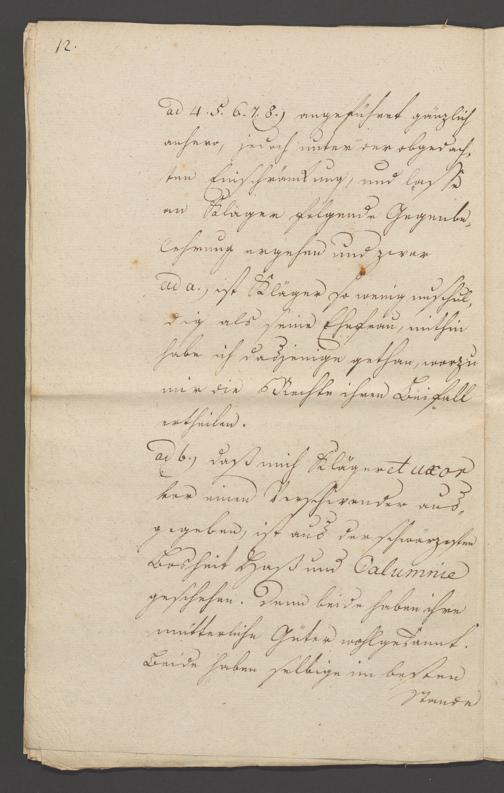 12.
ad 4. 5. 6. 7. 8.) angeführet gänzlich
anhero, jedoch unter der obgedach-
ten Einschränkung, und lasse
an Kläger folgende Gegenbe-
lehrung ergehen und zwar
ad a.) ist Kläger so wenig unschul-
dig als seine Ehefrau, mithin
habe ich dasjenige gethan, worzu
mir die Rechte ihren Beifall
ertheilen.
ad b.) daß mich Kläger et uxor
vor einen Verschwender aus-
gegeben, ist aus der schwärzesten
Bosheit Haß und Calumnie
geschehen. Denn beide haben ihre
mütterliche Güter wohlgekannt.
Beide haben selbige im besten
Stande